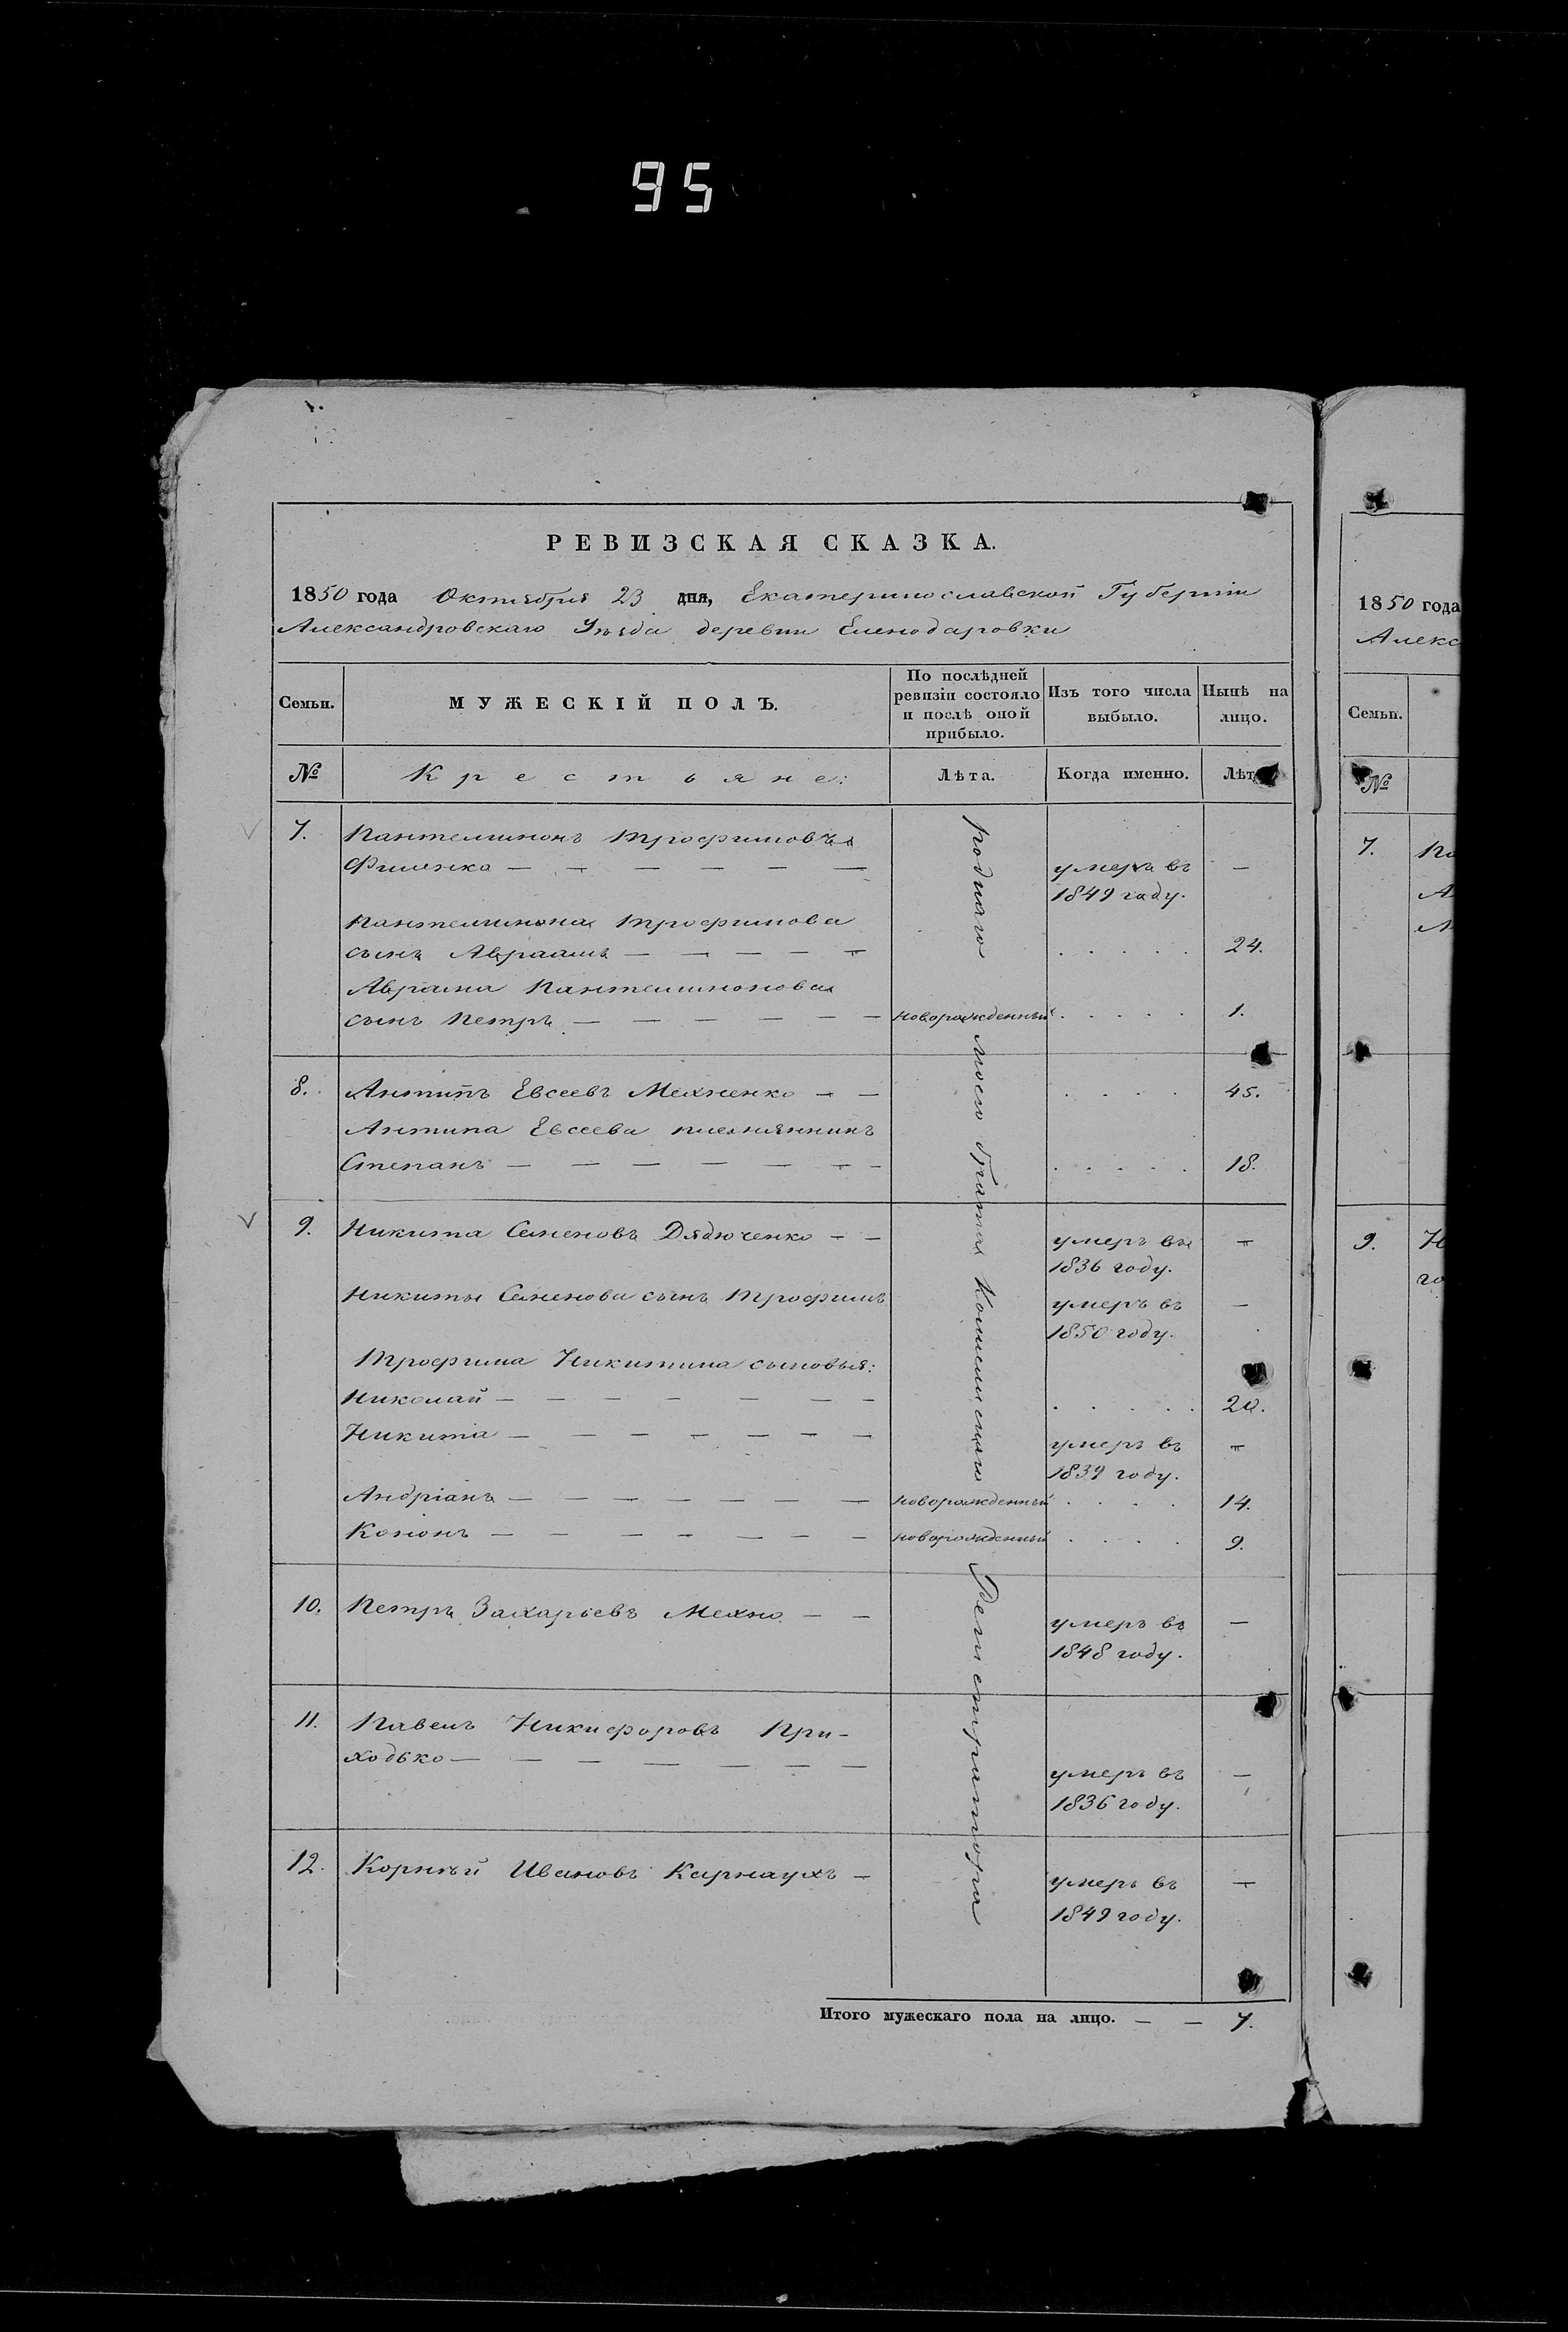 95
РЕВИЗСКАЯ СКАЗКА.
1850 года Октября 23 дня, Екатеринославской Губернiи
Александровскаго Уѣзда деревни Еленодаровки
Семьи.
МУЖЕСКІЙ ПОЛЪ.
По послѣдней ревизіи состояло и послѣ оной прибыло.
Изъ того числа выбыло.
Нынѣ на лицо.
№
Крестьяне:
Лѣта.
Когда именно.
Лѣт
7. Пантелимонъ Трофимовъ
Филенко — — — — — — умеръ въ —
1849 году.
Пантелимона Трофимова
сынъ Авраамъ — — — — — . . . . . 24.
Авраама Пантелимонова
сынъ Петръ — — — — — — новорожденный . . . . . 1.
8. Антипъ Евсеевъ Махненко — — . . . . 45.
Антипа Евсеева племянникъ
Степанъ — — — — — — — . . . . . 18.
9. Никита Семеновъ Дядюченко — — умеръ въ —
1836 году.
Никиты Семенова сынъ Трофимъ умеръ въ —
1850 году.
Трофима Никитина сыновья:
Николай — — — — — — — . . . . . 20.
Никита — — — — — — — умеръ въ —
1839 году.
Андріанъ — — — — — — — новорожденный . . . . 14.
Кононъ — — — — — — — новорожденный . . . . 9.
10. Петръ Захарьевъ Махно — — умеръ въ —
1848 году.
11. Павелъ Никифоровъ При-
ходько — — — — — — — умеръ въ —
1836 году.
12. Корнѣй Ивановъ Карнаухъ — умеръ въ —
1849 году.
роднаго моего брата Регистратора
Итого мужескаго пола на лицо. — — 7.
1850 года
Алекс
Семьи.
№
7. Па
А
9. Н
го